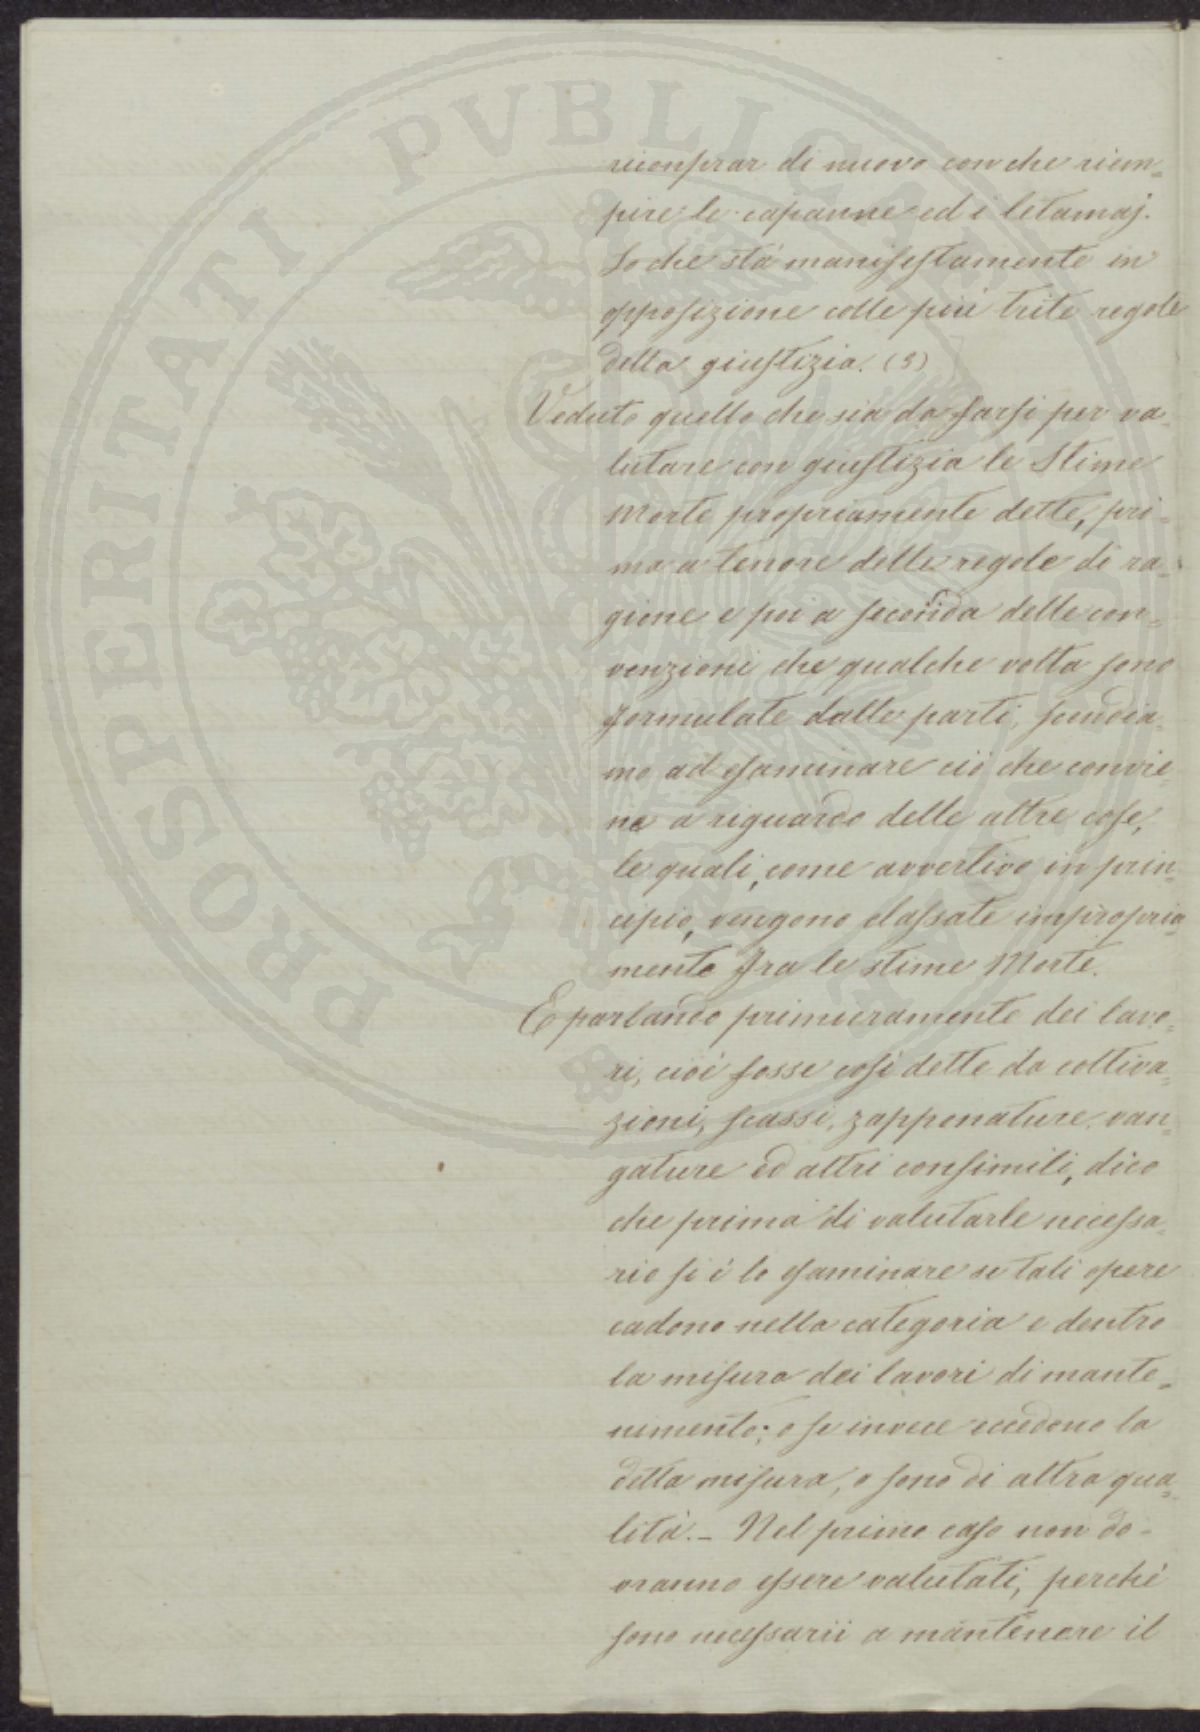 PROSPERITATI PUBLICAE AUGENDAE
riconprar di nuovo con che riem=
pire le capanne ed i letamaj.
Lo che stà manifestamente in
opposizione colle più trite regole
della giustizia. (3)
Veduto quello che sia da farsi per va=
lutare con giustizia le Stime
Morte propriamente dette, pri=
ma a tenore delle regole di ra=
gione e poi a seconda delle con=
venzioni che qualche volta sono
formulate dalle parti, scendia=
mo ad esaminare ciò che convie=
ne a riguardo delle altre cose,
le quali, come avvertivo in prin=
cipio, vengono classate impropria=
mente fra le stime Morte.
E parlando primieramente dei lavo=
ri, cioè fosse così dette da coltiva=
zioni, scassi, zapponature, van=
gature ed altri consimili, dico
che prima di valutarle necessa=
rio si è lo esaminare se tali opere
cadono nella categoria e dentro
la misura dei lavori di mante=
nimento; o se invece eccedono la
detta misura, o sono di altra qua=
lità. _ Nel primo caso non do=
vranno essere valutati, perchè
sono necessarii a mantenere il